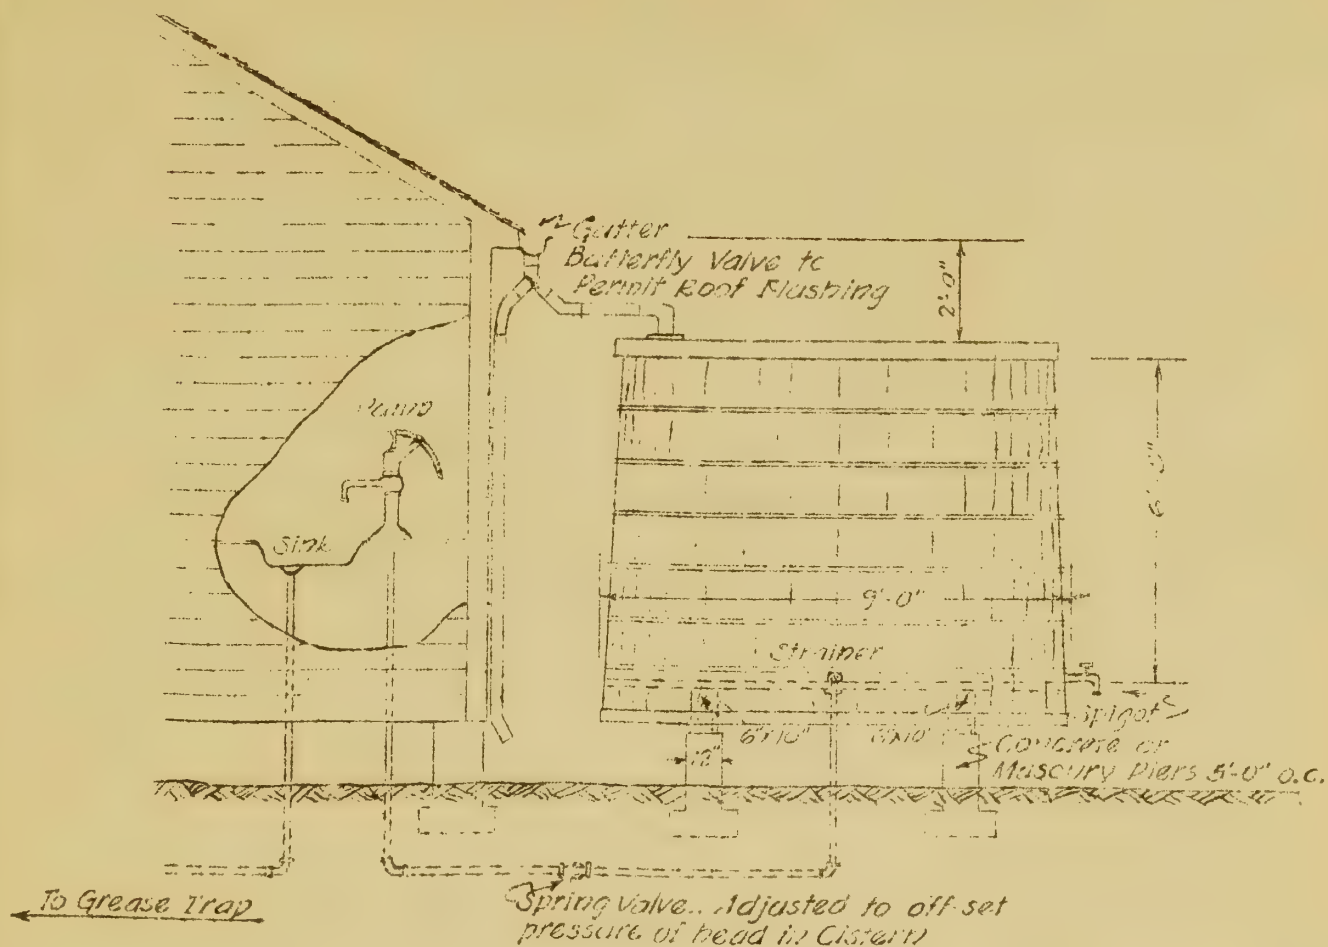 Gutter
Butterfly Valve to
Permit Roof Flushing
2'-0"
Pump
6'-0"
Sink
9'-0"
Strainer
Spigot
6"x10"
12"
Concrete or
Masonry Piers 5'-0" o.c.
To Grease Trap
Spring Valve.. Adjusted to off-set
pressure of head in Cistern